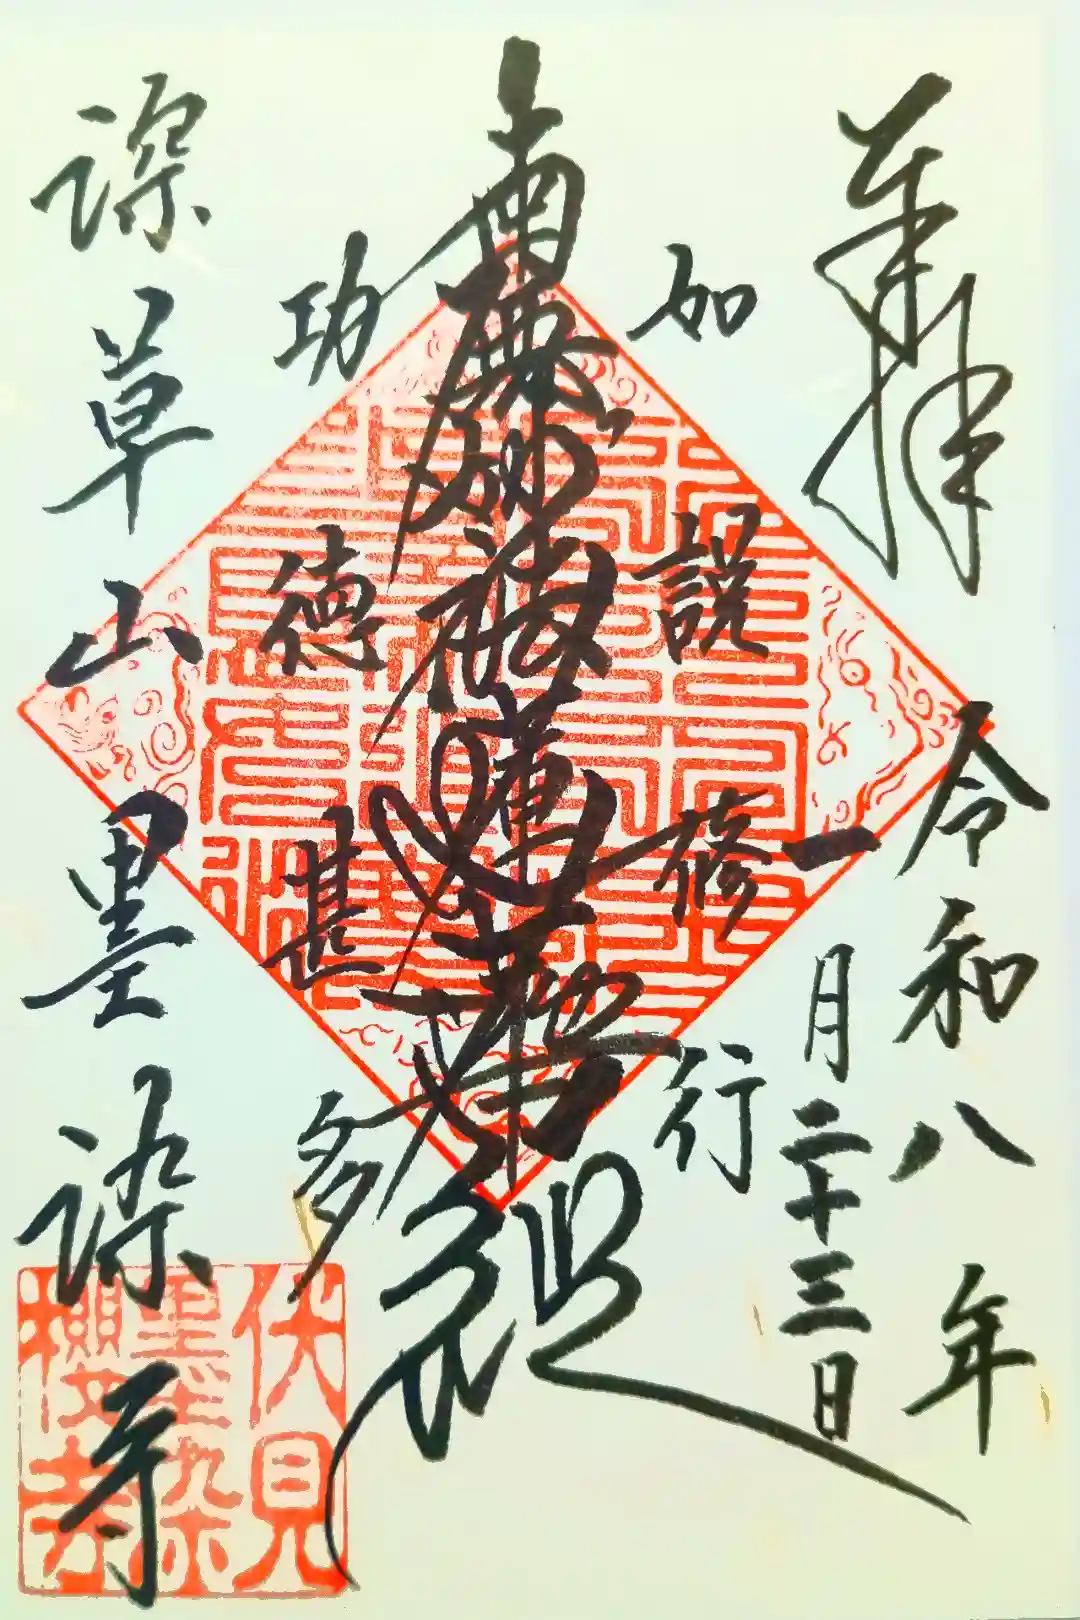 奉拝
令和八年
一月二十三日
如説修行
南無妙法蓮華經
功徳甚多
深草山墨染寺
伏見
墨染
櫻寺